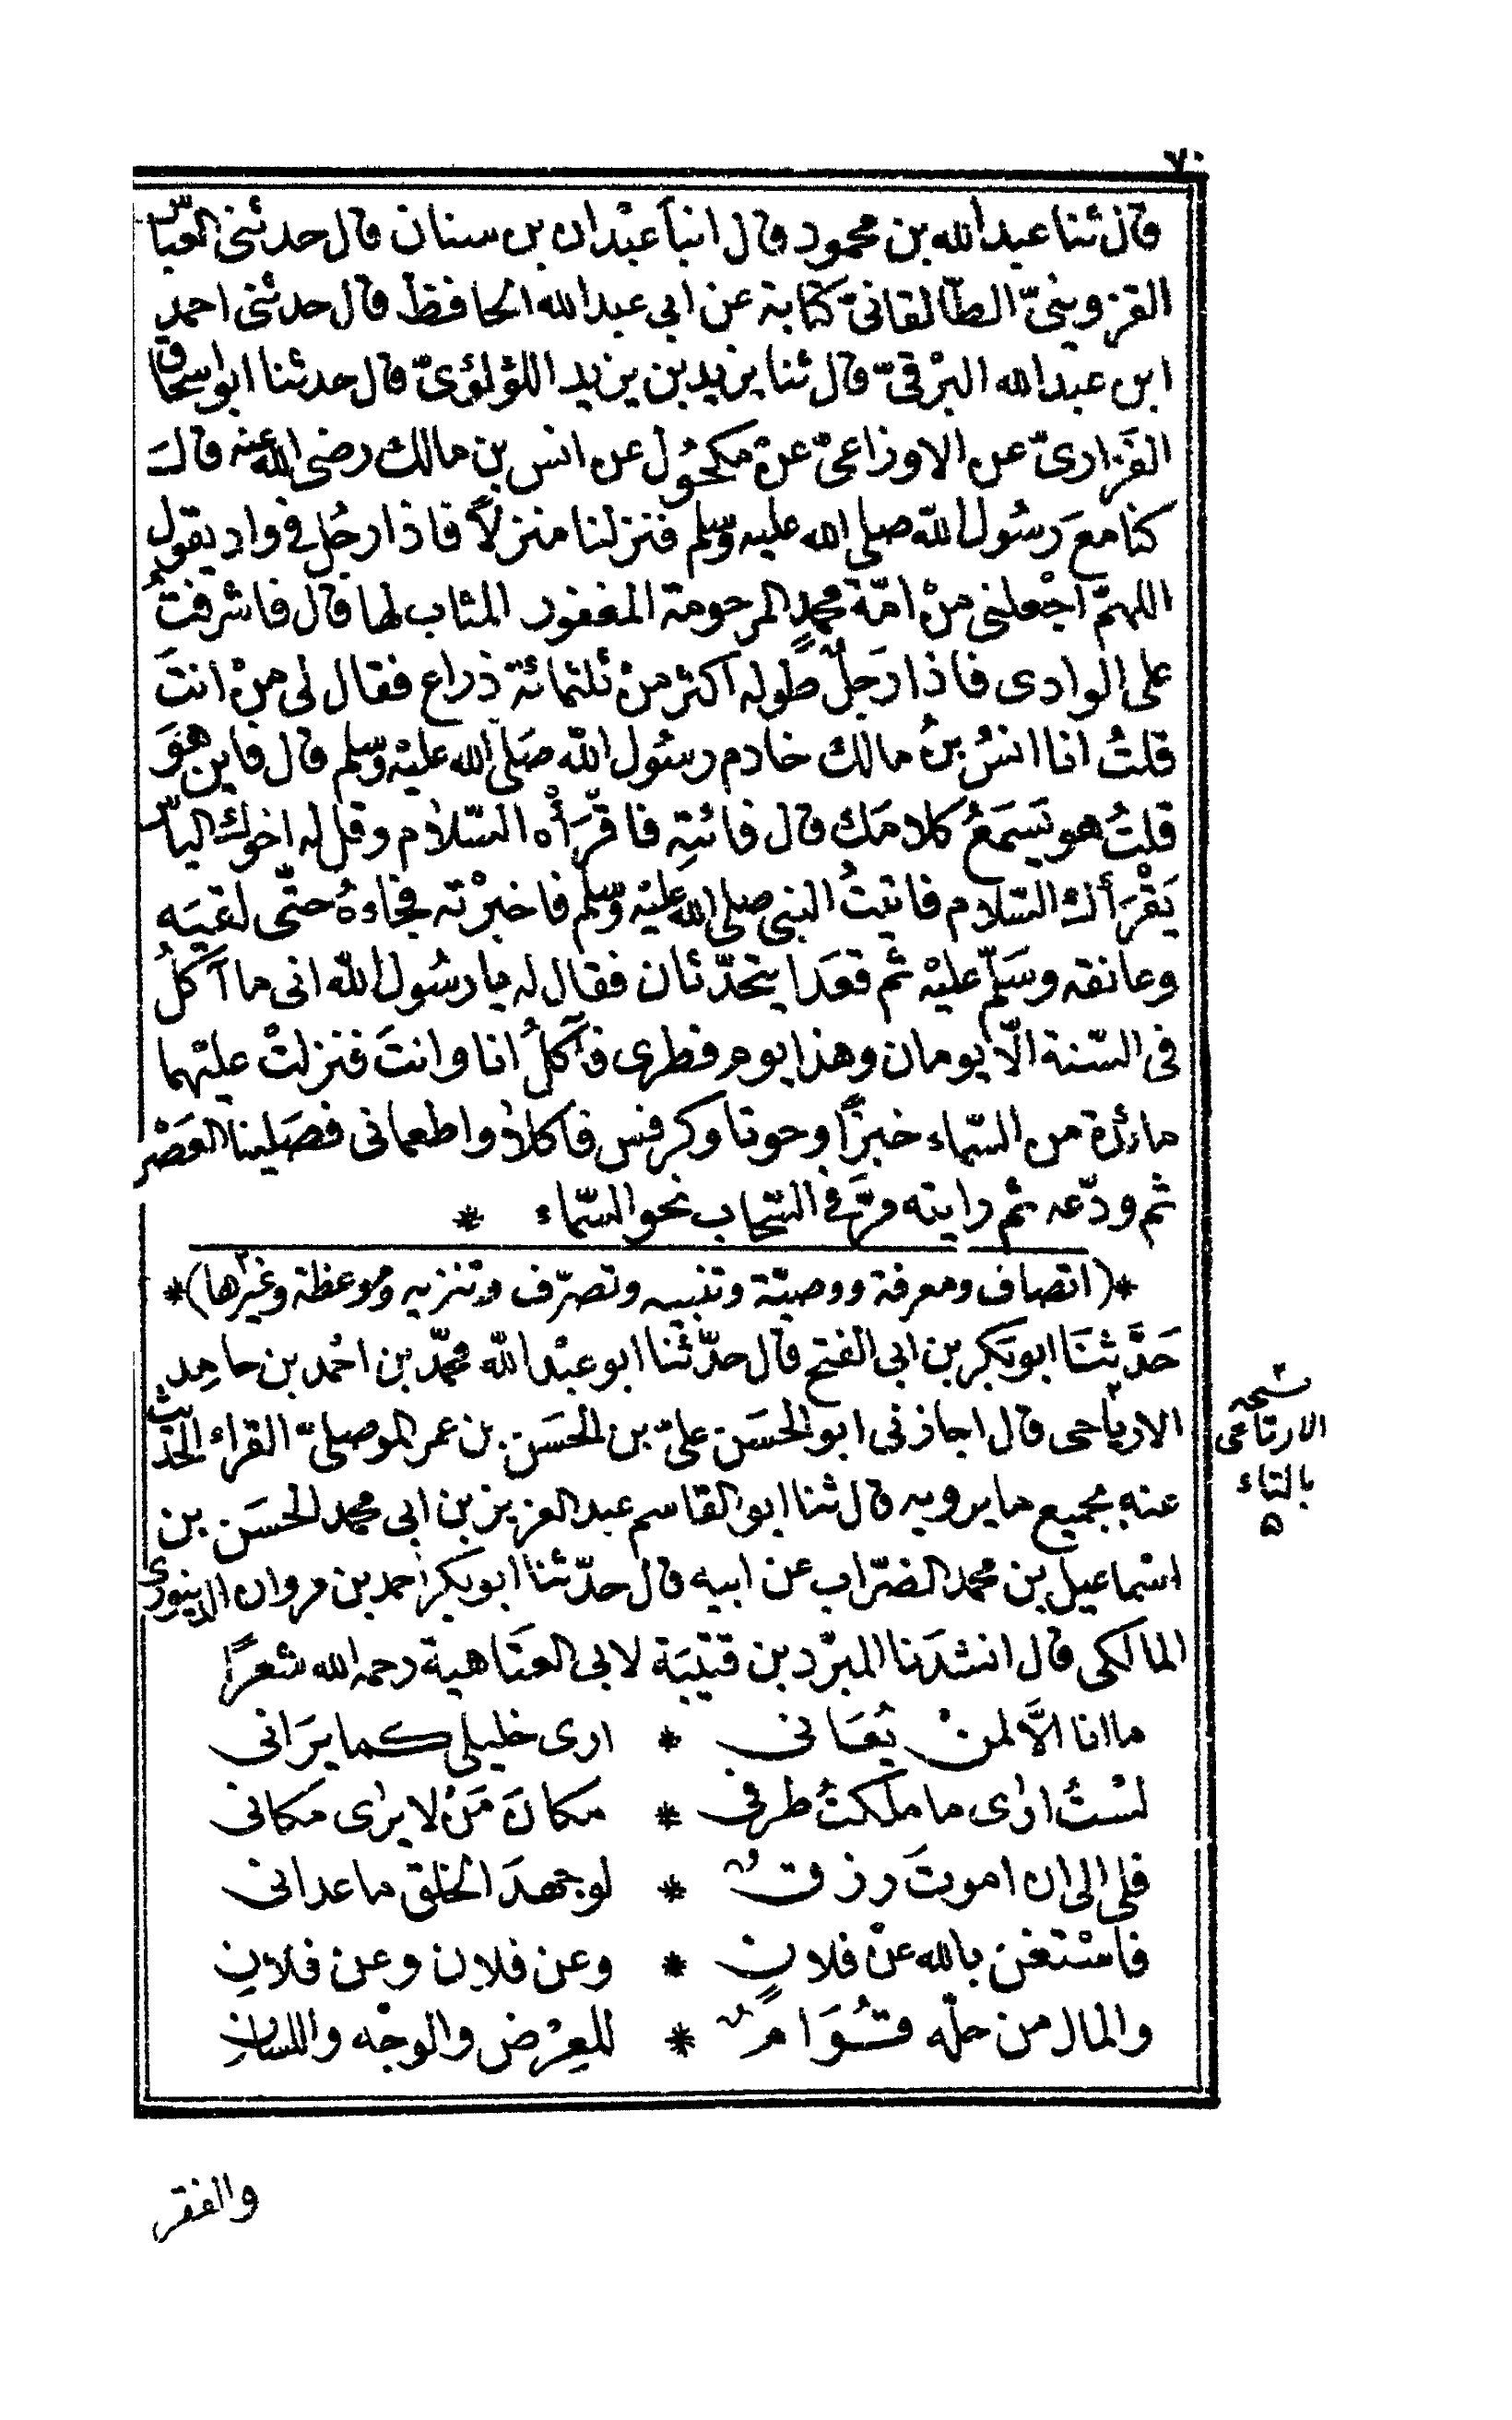 ٧٠
قال ثنا عبد الله بن محمود قال انبأ عبْدان بن سنان قال حدثنى العباس
القزوينىّ الطالقانىّ كتابة عن ابي عبد الله الحافظ قال حدثنى احمد
ابن عبد الله البرْقىّ قال ثنا يزيد بن يزيد اللؤلؤىّ قال حدثنا ابو اسحاق
الفَزارىّ عن الاوزاعىّ عنْ مكحُول عن انس بن مالك رضى الله عنه قال
كنا معَ رسُول الله صلى الله عليه وسلم فنزلنا منزلاً فاذا رجُل فى واد يقول
اللهمّ اجْعلنى منْ امّة محمدٍ المرحومة المغفور المثاب لها قال فاشرفتُ
على الوادى فاذا رَجلٌ طوله اكثر منْ ثلثمائة ذراع فقال لى منْ انتَ
قلتُ انا انسُ بنُ مالك خادم رسُول الله صَلى الله عليْه وسلم قال فاين هوَ
قلتُ هو يَسمَعُ كلامَك قال فائتِه فاقرَأْه السّلام وقل له اخوك الياس
يَقْرَأك السّلام فاتيتُ النبى صلى الله عليْه وسلم فاخبرْته فجاءهُ حتّى لقيَه
وعانقه وسَلّم عليْه ثم قعَدا يتحدّثان فقال له يا رسُول الله انى ما آكلُ
فى السّنة الّا يومان وهذا يوم فطرى فآكلُ انا وانتَ فنزلتْ عليْهما
مائدة من السّماء خبزًا وحوتا وكرفس فاكلا واطعمانى فصَلينا العَصْر
ثم ودّعه ثم رايته مرَّ فى السّحاب نحو السّماء *
*(اتصاف ومعرفة ووصيّة وتنبيه وتصرّف وتنزيه وموعظة وغيرها)*
حَدَّثنَا ابو بَكر بن ابى الفتح قال حدّثنا ابو عبْد الله محمّد بن احْمد بن حامِد
الارياحى قال اجاذنى ابو الحسَن علىّ بن الحسَن بن عمر الموصلىّ القراء الحديث
عنه بجميع ما يرويه قال ثنا ابو القاسم عبد العزيز بن ابى محمد الحسَن بن
اسْماعيل بن محمد الضرّاب عن ابيه قال حدّثنا ابو بكر احمد بن مروان الدينورى
المالكى قال انشدَنا المبرّد بن قتيْبَة لابى العتاهية رحمه الله شعرًا
ما انا الَّا لمنْ يُعَانى * ارى خليلى كما يرَانى
لسْتُ ارٰى ما ملكتُ طرفى * مكانَ مَنْ لا يرٰى مكانى
فلى الى ان اموتَ رزقٌ * لو جهدَ الخلق ما عدانى
فاسْتغن بالله عنْ فلانٍ * وعن فلان وعن فلانِ
والمال من حلّه قُوَامٌ * للعِرْض والوجْه واللسانِ
نسخة
الارتاحى
بالتاء
٥
والفقر